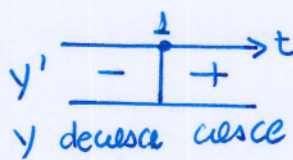 1
t
y' - +
y decresce cresce